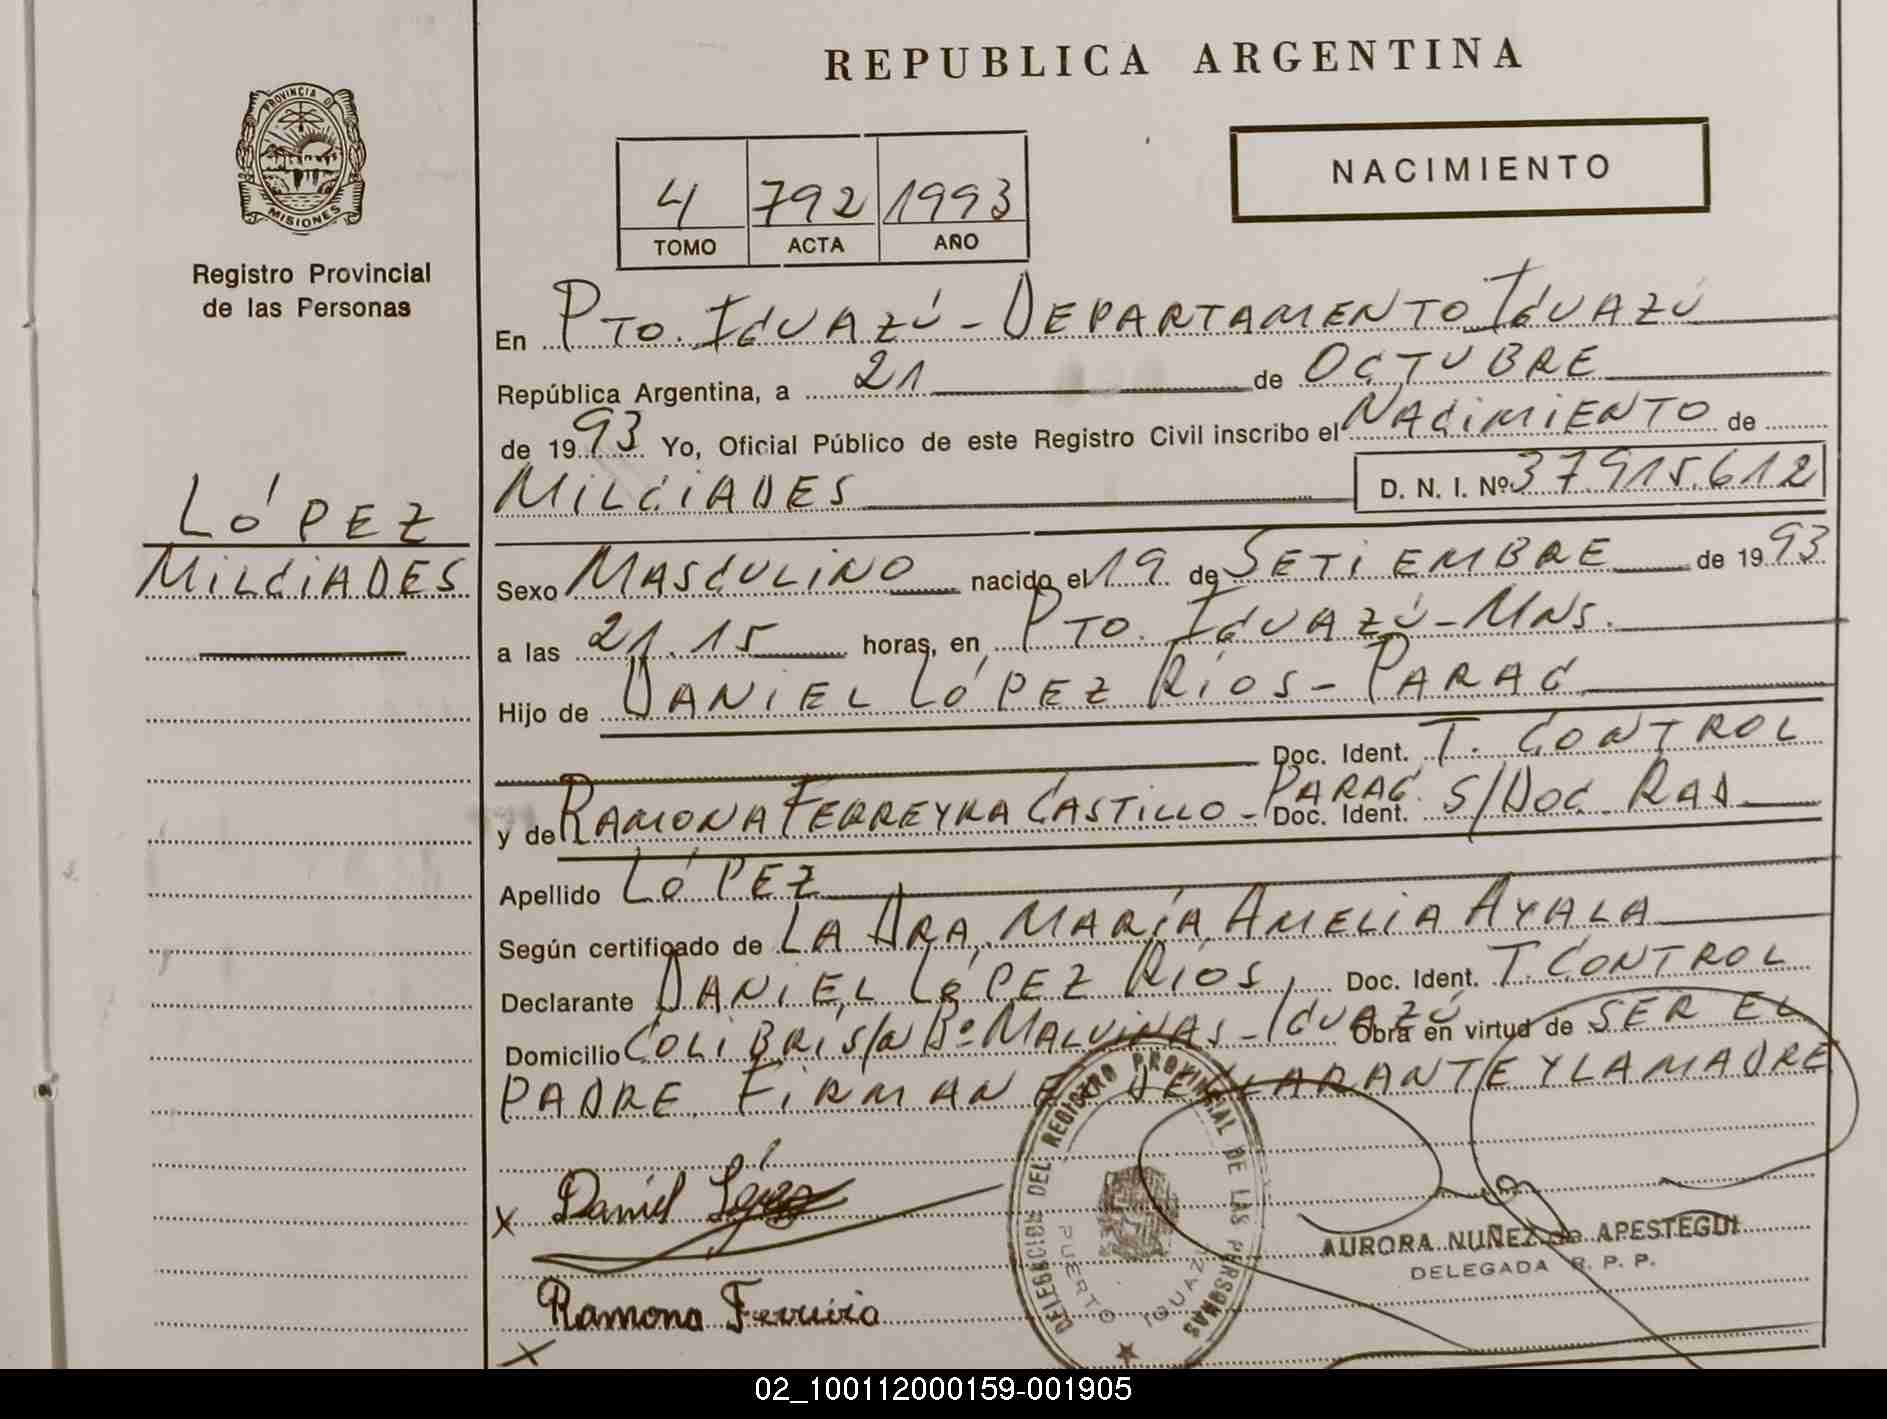 REPUBLICA ARGENTINA
PROVINCIA D
MISIONES
Registro Provincial
de las Personas
4 792 1993
TOMO ACTA AÑO
NACIMIENTO
En PTO. IGUAZÚ - DEPARTAMENTO IGUAZÚ
República Argentina, a 21 de OCTUBRE
de 1993 Yo, Oficial Público de este Registro Civil inscribo el NACIMIENTO de
MILCIADES D. N. I. Nº 37.915.612
LÓPEZ
MILCIADES
Sexo MASCULINO nacido el 19 de SETIEMBRE de 1993
a las 21.15 horas, en PTO. IGUAZÚ - MNS.
Hijo de DANIEL LÓPEZ RÍOS - PARAG
Doc. Ident. T. CONTROL
y de RAMONA FERREYRA CASTILLO - PARAG. Doc. Ident. S/DOC. RAD
Apellido LÓPEZ
Según certificado de LA DRA. MARÍA AMELIA AYALA
Declarante DANIEL LÓPEZ RÍOS, Doc. Ident. T. CONTROL
Domicilio COLIBRÍ S/N Bº MALVINAS - IGUAZÚ Obra en virtud de SER EL
PADRE. FIRMAN EL DECLARANTE Y LA MADRE
X Daniel López
Ramona Ferreira
X
DELEGACION DEL REGISTRO PROVINCIAL DE LAS PERSONAS
PUERTO IGUAZU
AURORA NUÑEZ de APESTEGUI
DELEGADA R. P. P.
02_100112000159-001905